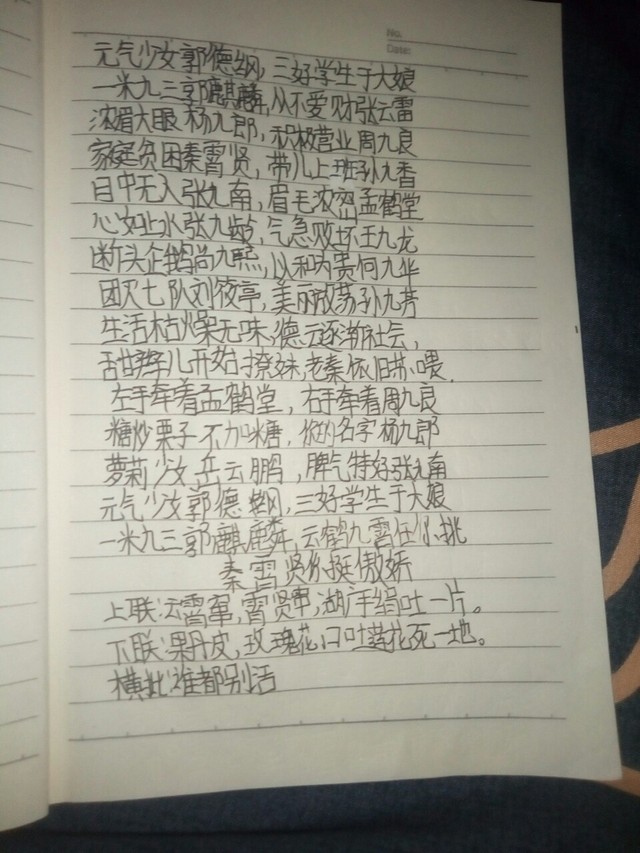 No.
Date:
元气少女郭德纲,三好学生于大娘
一米九三郭麒麟,从不爱财张云雷
浓眉大眼杨九郎,积极营业周九良
家庭贫困秦霄贤,带儿上班孙九香
目中无人张九南,眉毛浓密孟鹤堂
心如止水张九龄,气急败坏王九龙
断头企鹅尚九熙,以和为贵何九华
团欠七队刘筱亭,美丽放荡孙九芳
生活枯燥无味,德云逐渐社会,
甜辫儿开始撩妹,老秦依旧苏喂.
左手牵着孟鹤堂,右手牵着周九良
糖炒栗子不加糖,你的名字杨九郎
萝莉少女岳云鹏,脾气特好张九南
元气少女郭德纲,三好学生于大娘
一米九三郭麒麟,云鹤九霄任你挑
秦霄贤你挺傲娇
上联:云霄窜,霄贤串,湖广手绢吐一片。
下联:果丹皮,玫瑰花,口吐莲花死一地。
横批:谁都别活